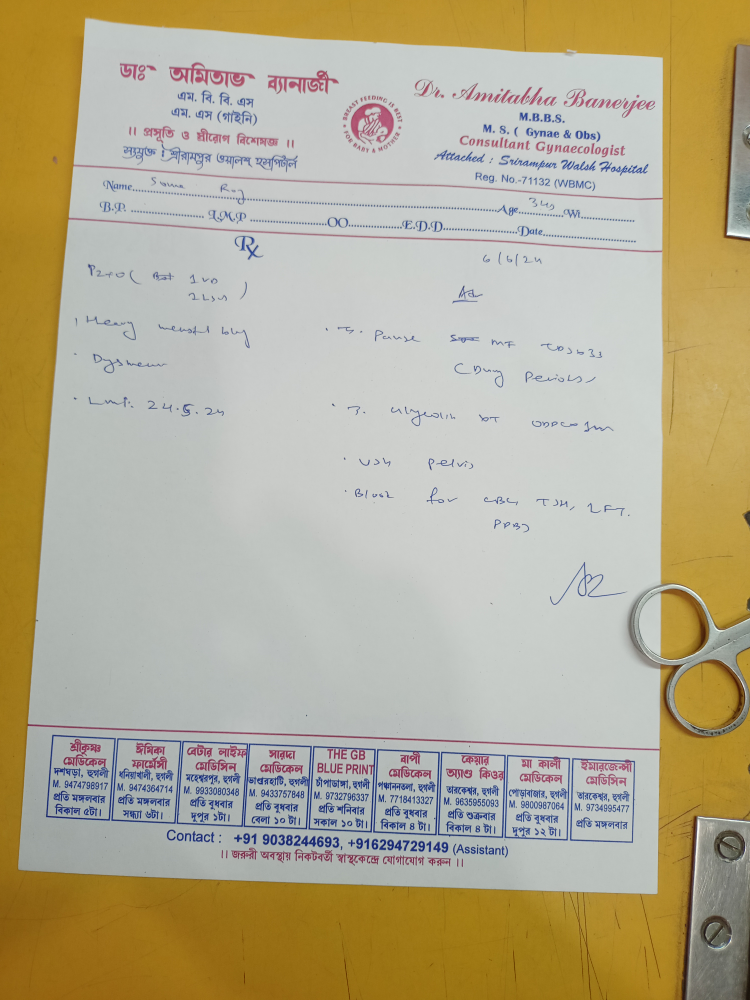 ডাঃ অমিতাভ ব্যানার্জী
এম. বি. বি. এস
এম. এস (গাইনি)
।। প্রসূতি ও স্ত্রীরোগ বিশেষজ্ঞ ।।
সংযুক্ত : শ্রীরামপুর ওয়ালশ হসপিটাল
BREAST FEEDING IS BEST
FOR BABY & MOTHER
Dr. Amitabha Banerjee
M.B.B.S.
M. S. ( Gynae & Obs)
Consultant Gynaecologist
Attached : Srirampur Walsh Hospital
Reg. No.-71132 (WBMC)
Name... Roy Age... Wt...
B.P. ... L.M.P ... OO... E.D.D... Date...
Rx
6/6/24
P2+0
Heavy
LMP. 24.5.24
T. Pause MF
Periods
USG Pelvis
Blood for TSH, LFT.
PPBS
শ্রীকৃষ্ণ মেডিকেল
দশঘড়া, হুগলী
M. 9474798917
প্রতি মঙ্গলবার
বিকাল ৫টা।
ঈষিকা ফার্মেসী
ধনিয়াখালী, হুগলী
M. 9474364714
প্রতি মঙ্গলবার
সন্ধ্যা ৬টা।
বেটার লাইফ মেডিসিন
মহেশ্বরপুর, হুগলী
M. 9933080348
প্রতি বুধবার
দুপুর ১টা।
সারদা মেডিকেল
ভাণ্ডারহাটি, হুগলী
M. 9433757848
প্রতি বুধবার
বেলা ১০ টা।
THE GB
BLUE PRINT
চাঁপাডাঙ্গা, হুগলী
M. 9732796337
প্রতি শনিবার
সকাল ১০ টা।
বাপী মেডিকেল
পঞ্চাননতলা, হুগলী
M. 7718413327
প্রতি বুধবার
বিকাল ৪ টা।
কেয়ার অ্যাণ্ড কিওর
তারকেশ্বর, হুগলী
M. 9635955093
প্রতি শুক্রবার
বিকাল ৪ টা।
মা কালী মেডিকেল
পোড়াবাজার, হুগলী
M. 9800987064
প্রতি বুধবার
দুপুর ১২ টা।
ইমারজেন্সী মেডিসিন
তারকেশ্বর, হুগলী
M. 9734995477
প্রতি মঙ্গলবার
Contact : +91 9038244693, +916294729149 (Assistant)
।। জরুরী অবস্থায় নিকটবর্তী স্বাস্থ্যকেন্দ্রে যোগাযোগ করুন ।।